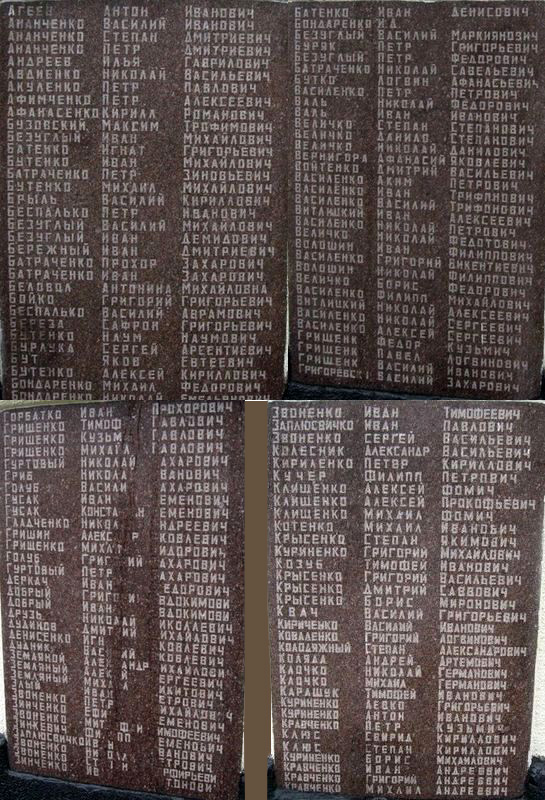 АГЕЕВ АНТОН ИВАНОВИЧ
АНАНЧЕНКО ВАСИЛИЙ ИВАНОВИЧ
АНАНЧЕНКО СТЕПАН ДМИТРИЕВИЧ
АНАНЧЕНКО ПЕТР ДМИТРИЕВИЧ
АНДРЕЕВ ИЛЬЯ ГАВРИЛОВИЧ
АВДИЕНКО НИКОЛАЙ ВАСИЛЬЕВИЧ
АКУЛЕНКО ПЕТР ПАВЛОВИЧ
АФИМЧЕНКО ПЕТР АЛЕКСЕЕВИЧ
АФАНАСЕНКО КИРИЛЛ РОМАНОВИЧ
БУЗОВСКИЙ МАКСИМ ТРОФИМОВИЧ
БЕЗУГЛЫЙ ИВАН МИХАЙЛОВИЧ
БАТЕНКО ИГНАТ ГРИГОРЬЕВИЧ
БУТЕНКО ИВАН МИХАЙЛОВИЧ
БАТРАЧЕНКО ПЕТР ЗИНОВЬЕВИЧ
БУТЕНКО МИХАИЛ МИХАЙЛОВИЧ
БРЫЛЬ ВАСИЛИЙ КИРИЛЛОВИЧ
БЕСПАЛЬКО ПЕТР ИВАНОВИЧ
БЕЗУГЛЫЙ ВАСИЛИЙ МИХАЙЛОВИЧ
БЕЗУГЛЫЙ ИВАН ДЕМИДОВИЧ
БЕРЕЖНЫЙ ИВАН ДМИТРИЕВИЧ
БАТРАЧЕНКО ПРОХОР ЗАХАРОВИЧ
БАТРАЧЕНКО ИВАН ЗАХАРОВИЧ
БЕЛОВОЛ АНТОНИНА МИХАЙЛОВНА
БОЙКО ГРИГОРИЙ ГРИГОРЬЕВИЧ
БЕСПАЛЬКО ВАСИЛИЙ АВРАМОВИЧ
БЕРЕЗА САФРОН ГРИГОРЬЕВИЧ
БУТЕНКО НАУМ НАУМОВИЧ
БУРЛУКА СЕРГЕЙ АРСЕНТИЕВИЧ
БУТ ЯКОВ ЕВГЕЕВИЧ
БУТЕНКО АЛЕКСЕЙ КИРИЛЛОВИЧ
БОНДАРЕНКО МИХАИЛ ФЕДОРОВИЧ
БАТЕНКО ИВАН ДЕНИСОВИЧ
БОНДАРЕНКО И.Д.
БЕЗУГЛЫЙ ВАСИЛИЙ МАРКИЯНОВИЧ
БУРЯК ПЕТР ГРИГОРЬЕВИЧ
БЕЗУГЛЫЙ ПЕТР ФЕДОРОВИЧ
БАТРАЧЕНКО НИКОЛАЙ САВЕЛЬЕВИЧ
БУТКО ЛОГВИН АФАНАСЬЕВИЧ
ВАСИЛЕНКО ПЕТР ПЕТРОВИЧ
ВАЛЬ НИКОЛАЙ ФЕДОРОВИЧ
ВАЛЬ ИВАН ИВАНОВИЧ
ВЕЛИЧКО СТЕПАН СТЕПАНОВИЧ
ВЕЛИЧКО ДАНИЛО СТЕПАНОВИЧ
ВЕЛИЧКО НИКОЛАЙ ДАНИЛОВИЧ
ВЕРНИГОРА АФАНАСИЙ ЯКОВЛЕВИЧ
ВОЙТЕНКО ДМИТРИЙ ВАСИЛЬЕВИЧ
ВАСИЛЕНКО АКИМ ПЕТРОВИЧ
ВАСИЛЕНКО ПЕТР ТРИФОНОВИЧ
ВАСИЛЕНКО ВАСИЛИЙ ТРИФОНОВИЧ
ВИТЛИЦКИЙ ИВАН АЛЕКСЕЕВИЧ
ВАСИЛЕНКО НИКОЛАЙ ПЕТРОВИЧ
ВЕЛИЧКО НИКОЛАЙ ФЕДОТОВИЧ
ВОЛОШИН ИВАН ФИЛИППОВИЧ
ВАСИЛЕНКО ГРИГОРИЙ ВИКЕНТИЕВИЧ
ВОЛОШИН НИКОЛАЙ ФИЛИППОВИЧ
БОРИС ФЕДОРОВИЧ
ВАСИЛЕНКО ФИЛИПП МИХАЙЛОВИЧ
ВИТЛИЦКИЙ НИКОЛАЙ АЛЕКСЕЕВИЧ
ВАСИЛЕНКО НИКОЛАЙ СЕРГЕЕВИЧ
ВАСИЛЕНКО АЛЕКСЕЙ СЕРГЕЕВИЧ
ГРИШЕНКО ФЕДОР КУЗЬМИЧ
ПАВЕЛ ЛОГВИНОВИЧ
ГРИЩЕНКО ВАСИЛИЙ ИВАНОВИЧ
ВАСИЛИЙ ЗАХАРОВИЧ
ГОРБАТКО ИВАН ПРОХОРОВИЧ
ГРИЩЕНКО ТИМОФ ПАВЛОВИЧ
ГРИЩЕНКО КУЗЬМ ГАВЛОВИЧ
ГРИЩЕНКО МИХА ПАВЛОВИЧ
ГУРТОВЫЙ НИКОЛАЙ АХАРОВИЧ
ГРИБ НИКОЛА ВАНОВИЧ
ГОЛУБ ВАСИЛИ АХАРОВИЧ
ГУСАК ИВАН ЕМЕНОВИЧ
ГУСАК КОНСТА Н ЕМЕНОВИЧ
ГЛАДЧЕНКО НИКОЛА НДРЕЕВИЧ
ГРИШИН АЛЕКС Р КОВЛЕВИЧ
ГРИЩЕНКО МИХА ИДОРОВИЧ
ГОЛУБ ГРИГ ИЙ АХАРОВИЧ
ГУРТОВЫЙ ПЕТР АХАРОВИЧ
ДЕРКАЧ ИВАН ЕДОРОВИЧ
ДОБРЫЙ ГРИГО ВДОКИМОВИЧ
ДОБРЫЙ ИВАН ВДОКИМОВИЧ
НИКОЛАЙ КОВЛЕВИЧ
ДУДНИКОВ ДМИТ ИЙ ИХАЙЛОВИЧ
ДЕНИСЕНКО ИВАН КОВЛЕВИЧ
ДУДНИК ВАС КОВЛЕВИЧ
ЗЕМЛЯНОЙ ВАС КОВЛЕВИЧ
ЗЕМЛЯНОЙ АЛЕК НДР ИХАЙЛОВИЧ
ЗЕМЛЯНОЙ АЛЕК ЕРГЕЕВИЧ
ИВАН ИКИТОВИЧ
ЗИНЧЕНКО ПЕТР ЕТРОВИЧ
ЗВОНЕНКО
ЗВОНЕНКО ЕМЕНОВИЧ
ИМОФЕЕВИЧ
ЗВОНЕНКО
ЗВОНЕНКО СТ
ЗИНЧЕНКО
ЗВОНЕНКО ИВАН ТИМОФЕЕВИЧ
ЗАПЛЮСВИЧКО ИВАН ПАВЛОВИЧ
ЗВОНЕНКО СЕРГЕЙ ВАСИЛЬЕВИЧ
КОЛЕСНИК АЛЕКСАНДР ВАСИЛЬЕВИЧ
КИРИЛЕНКО ПЕТР КИРИЛЛОВИЧ
КУЧЕР ФИЛИПП ПЕТРОВИЧ
КЛИЩЕНКО АЛЕКСЕЙ ФОМИЧ
КЛИЩЕНКО АЛЕКСЕЙ ПРОКОФЬЕВИЧ
КЛИЩЕНКО МИХАИЛ ФОМИЧ
КОТЕНКО МИХАИЛ ИВАНОВИЧ
КРЫСЕНКО СТЕПАН ЯКИМОВИЧ
КУРИНЕНКО ГРИГОРИЙ МИХАЙЛОВИЧ
КОЗУБ ТИМОФЕЙ ИВАНОВИЧ
КРЫСЕНКО ГРИГОРИЙ ВАСИЛЬЕВИЧ
КРЫСЕНКО ДМИТРИЙ САВВОВИЧ
КРЫСЕНКО БОРИС МИРОНОВИЧ
КВАЧ ВАСИЛИЙ ГРИГОРЬЕВИЧ
КИРИЧЕНКО ВАСИЛИЙ ИВАНОВИЧ
КОВАЛЕНКО ГРИГОРИЙ ЛОГВИНОВИЧ
КОЛОДЯЖНЫЙ СТЕПАН АЛЕКСАНДРОВИЧ
КОЛЯДА АНДРЕЙ АРТЕМОВИЧ
КЛОЧКО НИКОЛАЙ ГЕРМАНОВИЧ
КЛОЧКО МИХАИЛ ГЕРМАНОВИЧ
КАРАЩУК ТИМОФЕЙ ИВАНОВИЧ
КУРИНЕНКО ЛЕВКО ГРИГОРЬЕВИЧ
КУРИНЕНКО АНТОН ИВАНОВИЧ
КРАВЧЕНКО ПЕТР КУЗЬМИЧ
КЛЮС СВИРИД КИРИЛЛОВИЧ
КЛЮС СТЕПАН КИРИЛЛОВИЧ
КУРИНЕНКО БОРИС МИХАЙЛОВИЧ
КРАВЧЕНКО ИВАН АНДРЕЕВИЧ
КРАВЧЕНКО ГРИГОРИЙ АНДРЕЕВИЧ
КРАВЧЕНКО МИХАИЛ АНДРЕЕВИЧ